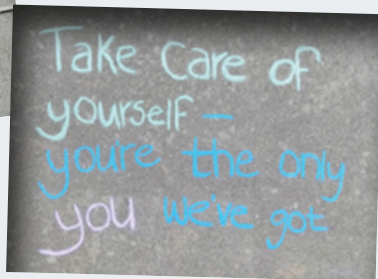 Take Care of
yourself —
you're the only
you we've got